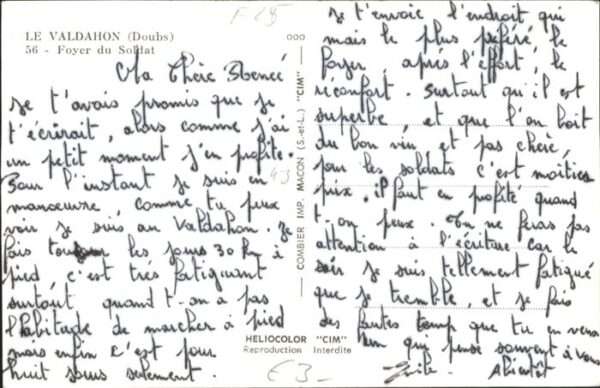 LE VALDAHON (Doubs)
56 - Foyer du Soldat
F 15
Ma Chère
Je t'avais promis que je
t'écrirait, alors comme j'ai
un petit moment j'en profite.
Pour l'instant je suis en
manœuvre, comme tu peux
voir je suis au Valdahon. Je
fais tous les jours 30 km à
pied, c'est très fatiguant
surtout quant t-on a pas
l'habitude de marcher à pied
mais enfin c'est pour
huit jours seulement.
43
COMBIER IMP. MACON (S.-et-L.) "CIM"
HELIOCOLOR "CIM"
Reproduction Interdite
€3-
je t'envoie l'endroit qui
mais le plus préféré, le
foyer, après l'effort, le
réconfort. Surtout qu'il est
superbe et que l'on boit
du bon vin, et pas chère,
pour les soldats c'est moitiés
prix. il faut en profité quand
t-on peux. Tu ne feras pas
attention à l'écriture car le
soir je suis tellement fatigué
que je tremble, et je fais
des fautes temp que tu en veux
un qui pense souvent à vous
Abientôt